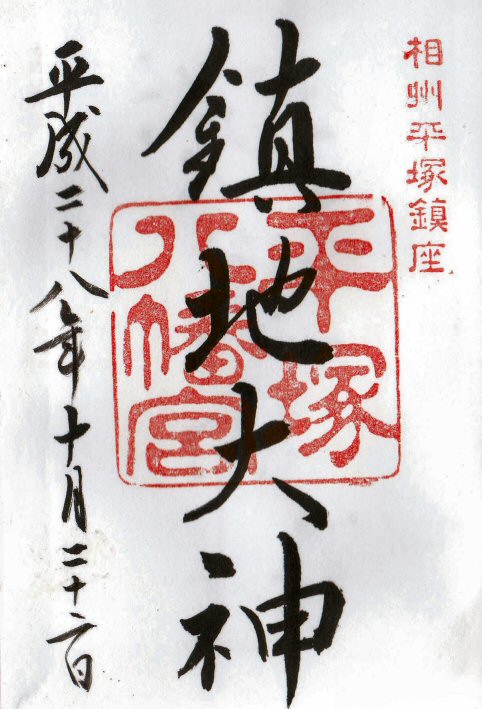 相州平塚鎮座
鎮地大神
平塚
八幡宮
平成二十八年十月二十六日